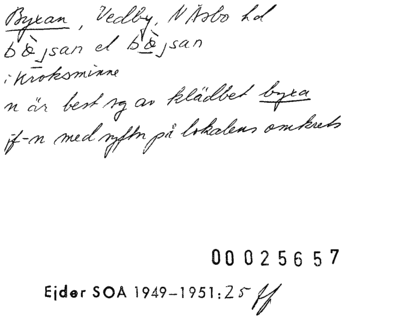 Byxan, Vedby, N Åsbo hd
bœ̀jsan el bœ̀jsan
i Kroksminne
n är best sg av klädbet byxa
jf-n med syftn på lokalens omkrets
00025657
Ejder SOA 1949-1951:25 ff